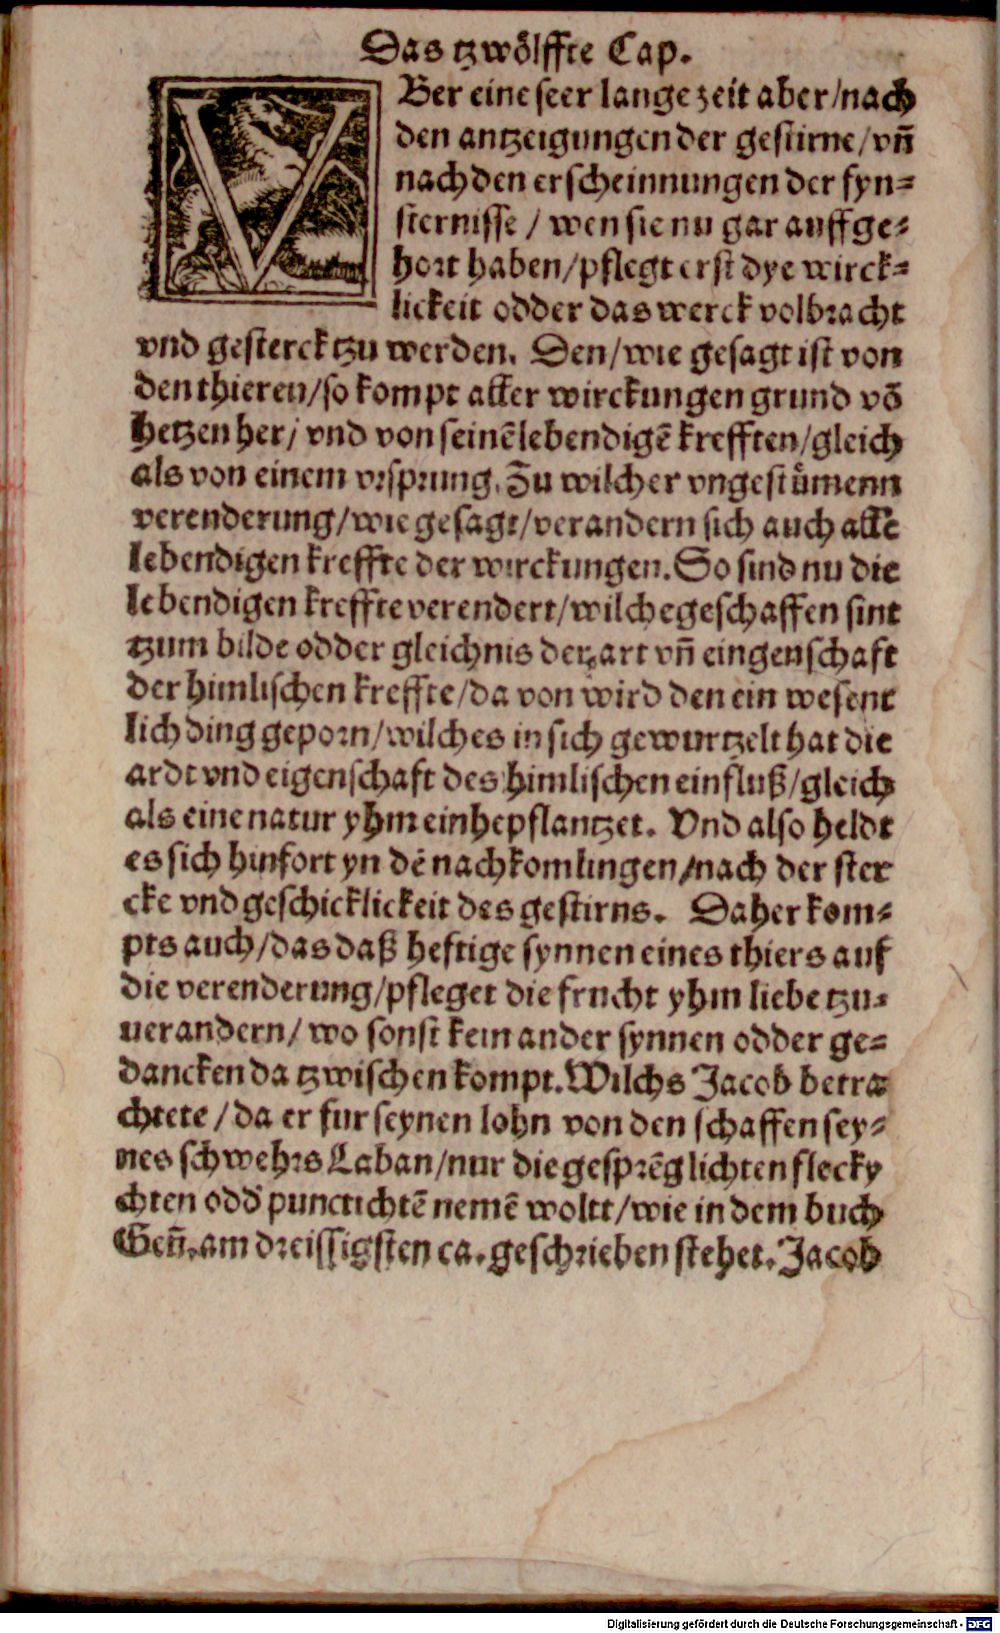 Das tzwölffte Cap.
VBer eine seer lange zeit aber/nach
den antzeigungen der gestirne/vñ
nach den erscheinnungen der fyn⸗
sternisse / wen sie nu gar auffge⸗
hort haben/pflegt erst dye wirck⸗
lickeit odder das werck volbracht
vnd gesterck tzu werden. Den/wie gesagt ist von
den thieren/so kompt aller wirckungen grund võ
hetzen her/ vnd von seinē lebendigē krefften/gleich
als von einem vrsprung. Zu wilcher vngestümenn
verenderung/wie gesagt/verandern sich auch alle
lebendigen kreffte der wirckungen. So sind nu die
lebendigen kreffte verendert/wilche geschaffen sint
tzum bilde odder gleichnis der art vñ eingenschaft
der himlischen kreffte/da von wird den ein wesent
lich ding geporn/wilches in sich gewurtzelt hat die
ardt vnd eigenschaft des himlischen einfluß/gleich
als eine natur yhm einhepflantzet. Vnd also heldt
es sich hinfort yn dē nachkomlingen/nach der ster
cke vnd geschicklickeit des gestirns. Daher kom⸗
pts auch/das daß heftige synnen eines thiers auf
die verenderung/pfleget die frucht yhm liebe tzu⸗
uerandern/ wo sonst kein ander synnen odder ge⸗
dancken da tzwischen kompt. Wilchs Jacob betra⸗
chtete / da er fur seynen lohn von den schaffen sey⸗
nes schwehrs Laban/nur die gesprēglichten flecky
chten odd̓ punctichtē nemē woltt/wie in dem buch
Geñ. am dreissigsten ca. geschrieben stehet. Jacob
Digitalisierung gefördert durch die Deutsche Forschungsgemeinschaft - DFG